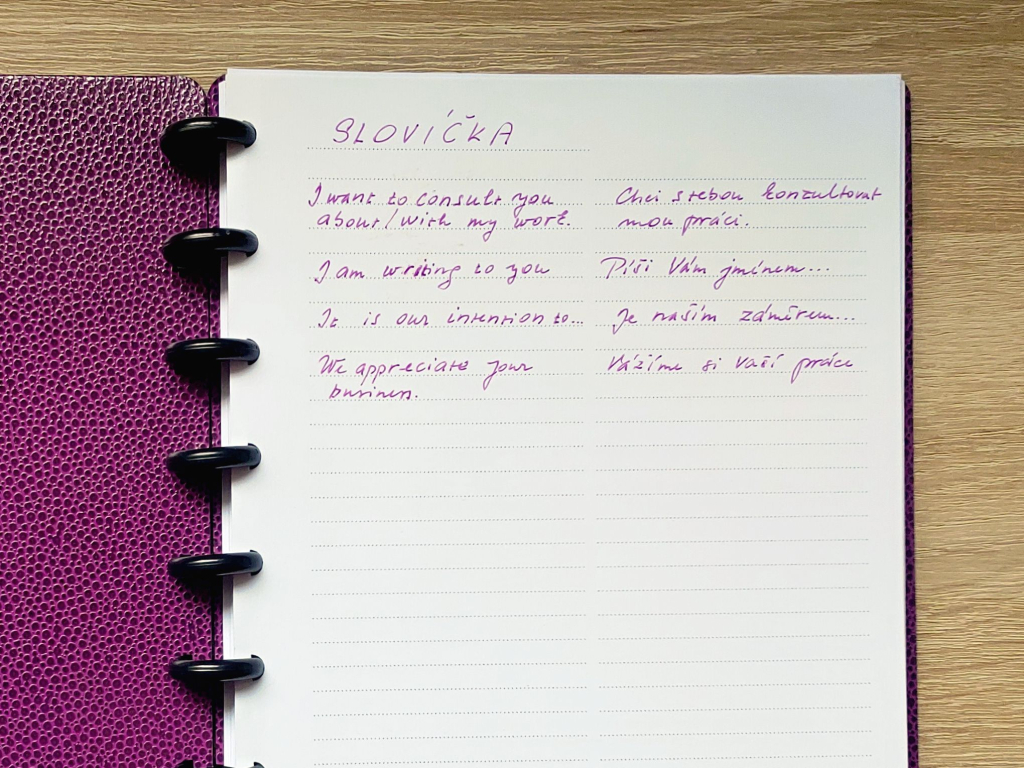 SLOVÍČKA
I want to consult you Chci s tebou konzultovat
about/with my work. mou práci.
I am writing to you Píši Vám jménem...
It is our intention to... Je naším záměrem...
We appreciate your Vážíme si vaší práce
business.